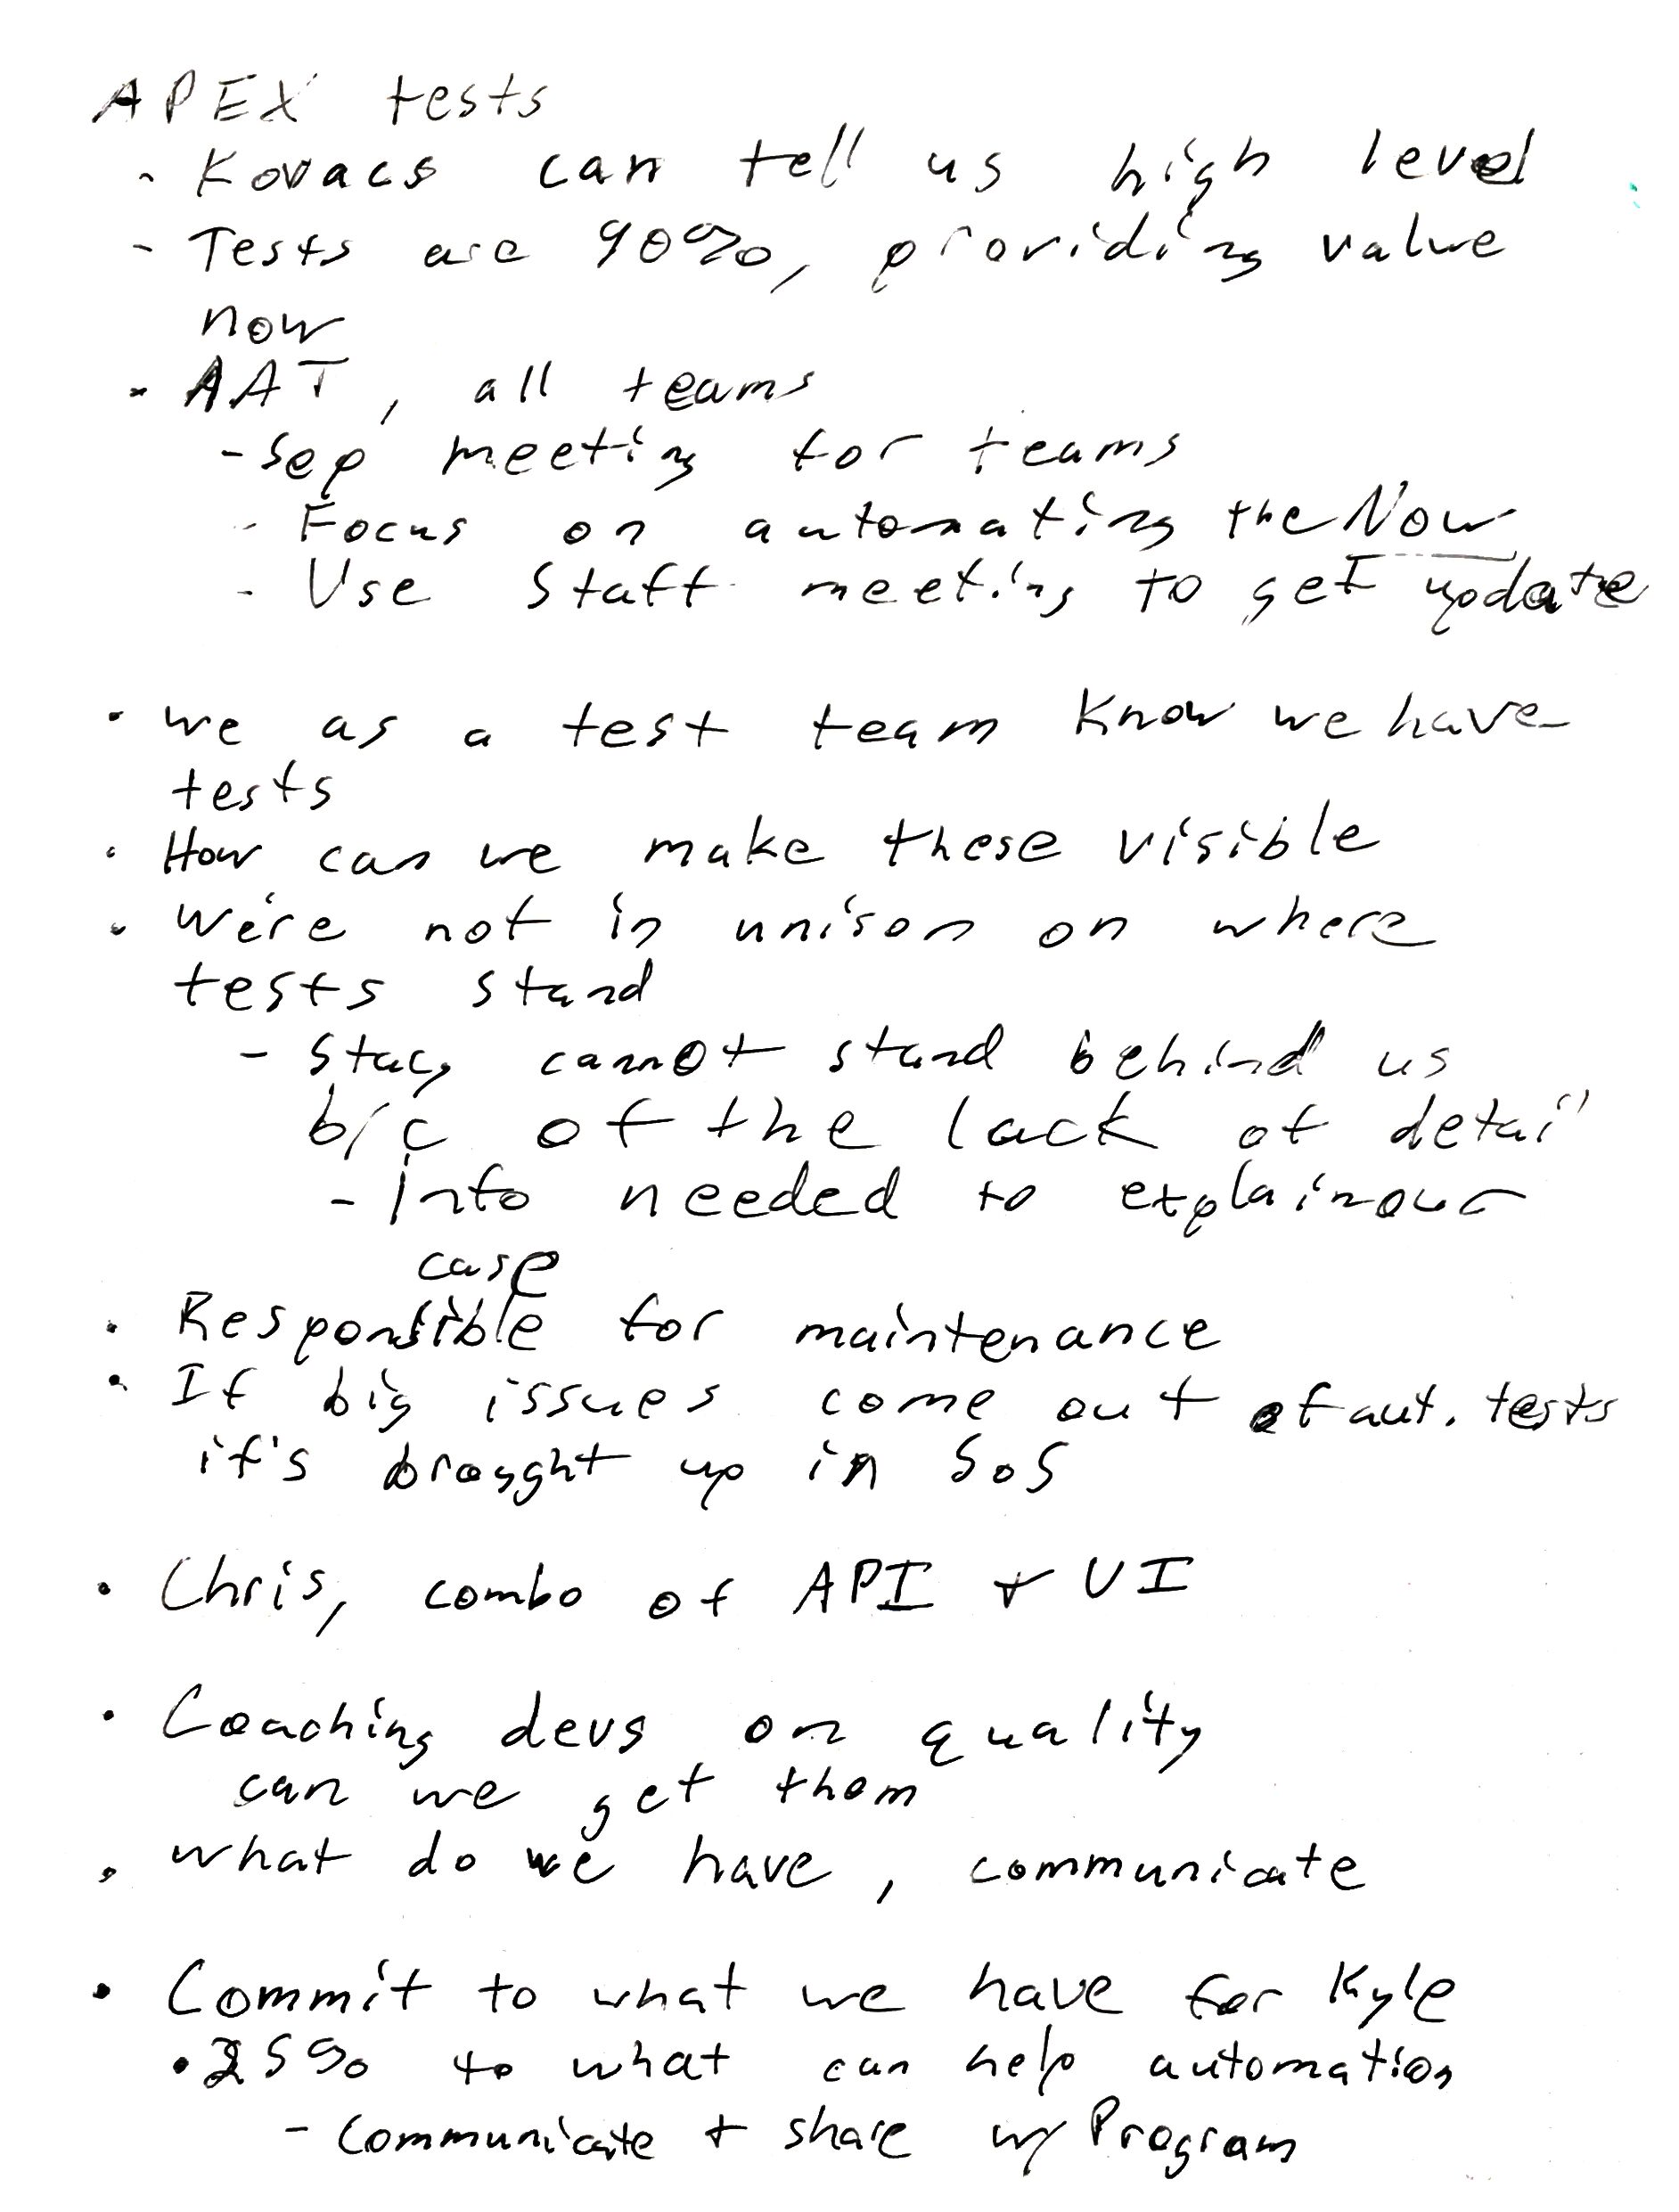 APEX tests
- Kovacs can tell us high level
- Tests are 90%, providing value
now
- AAT, all teams
- Sep meeting for teams
- Focus on automating the Now
- Use Staff meeting to get update
• we as a test team know we have
tests
• How can we make these visible
• We're not in unison on where
tests stand
- Stacy cannot stand behind us
b/c of the lack of detail
- Info needed to explain our
case
• Responsible for maintenance
• If big issues come out of aut. tests
it's brought up in SoS
• Chris, combo of API + UI
• Coaching devs on quality
can we get them
• what do we have, communicate
• Commit to what we have for Kyle
• 25% to what can help automation
- Communicate + share w/ Program